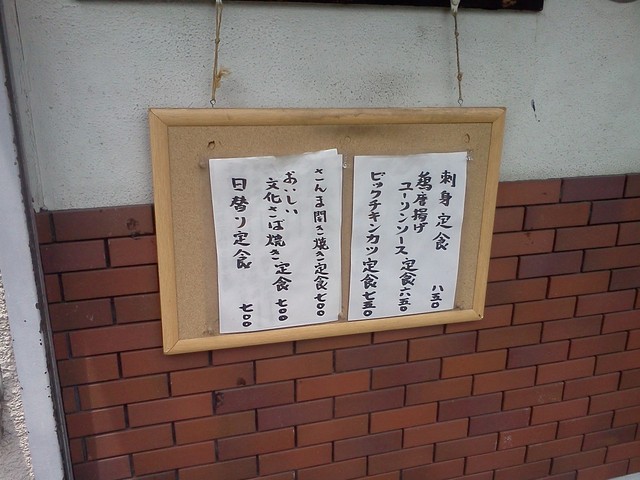 刺身定食 八五〇
鶏唐揚げ
ユーリンソース定食 八五〇
ビックチキンカツ定食 七五〇
さんま開き焼き定食 七〇〇
おいしい
文化さば焼き定食 七〇〇
日替り定食 七〇〇